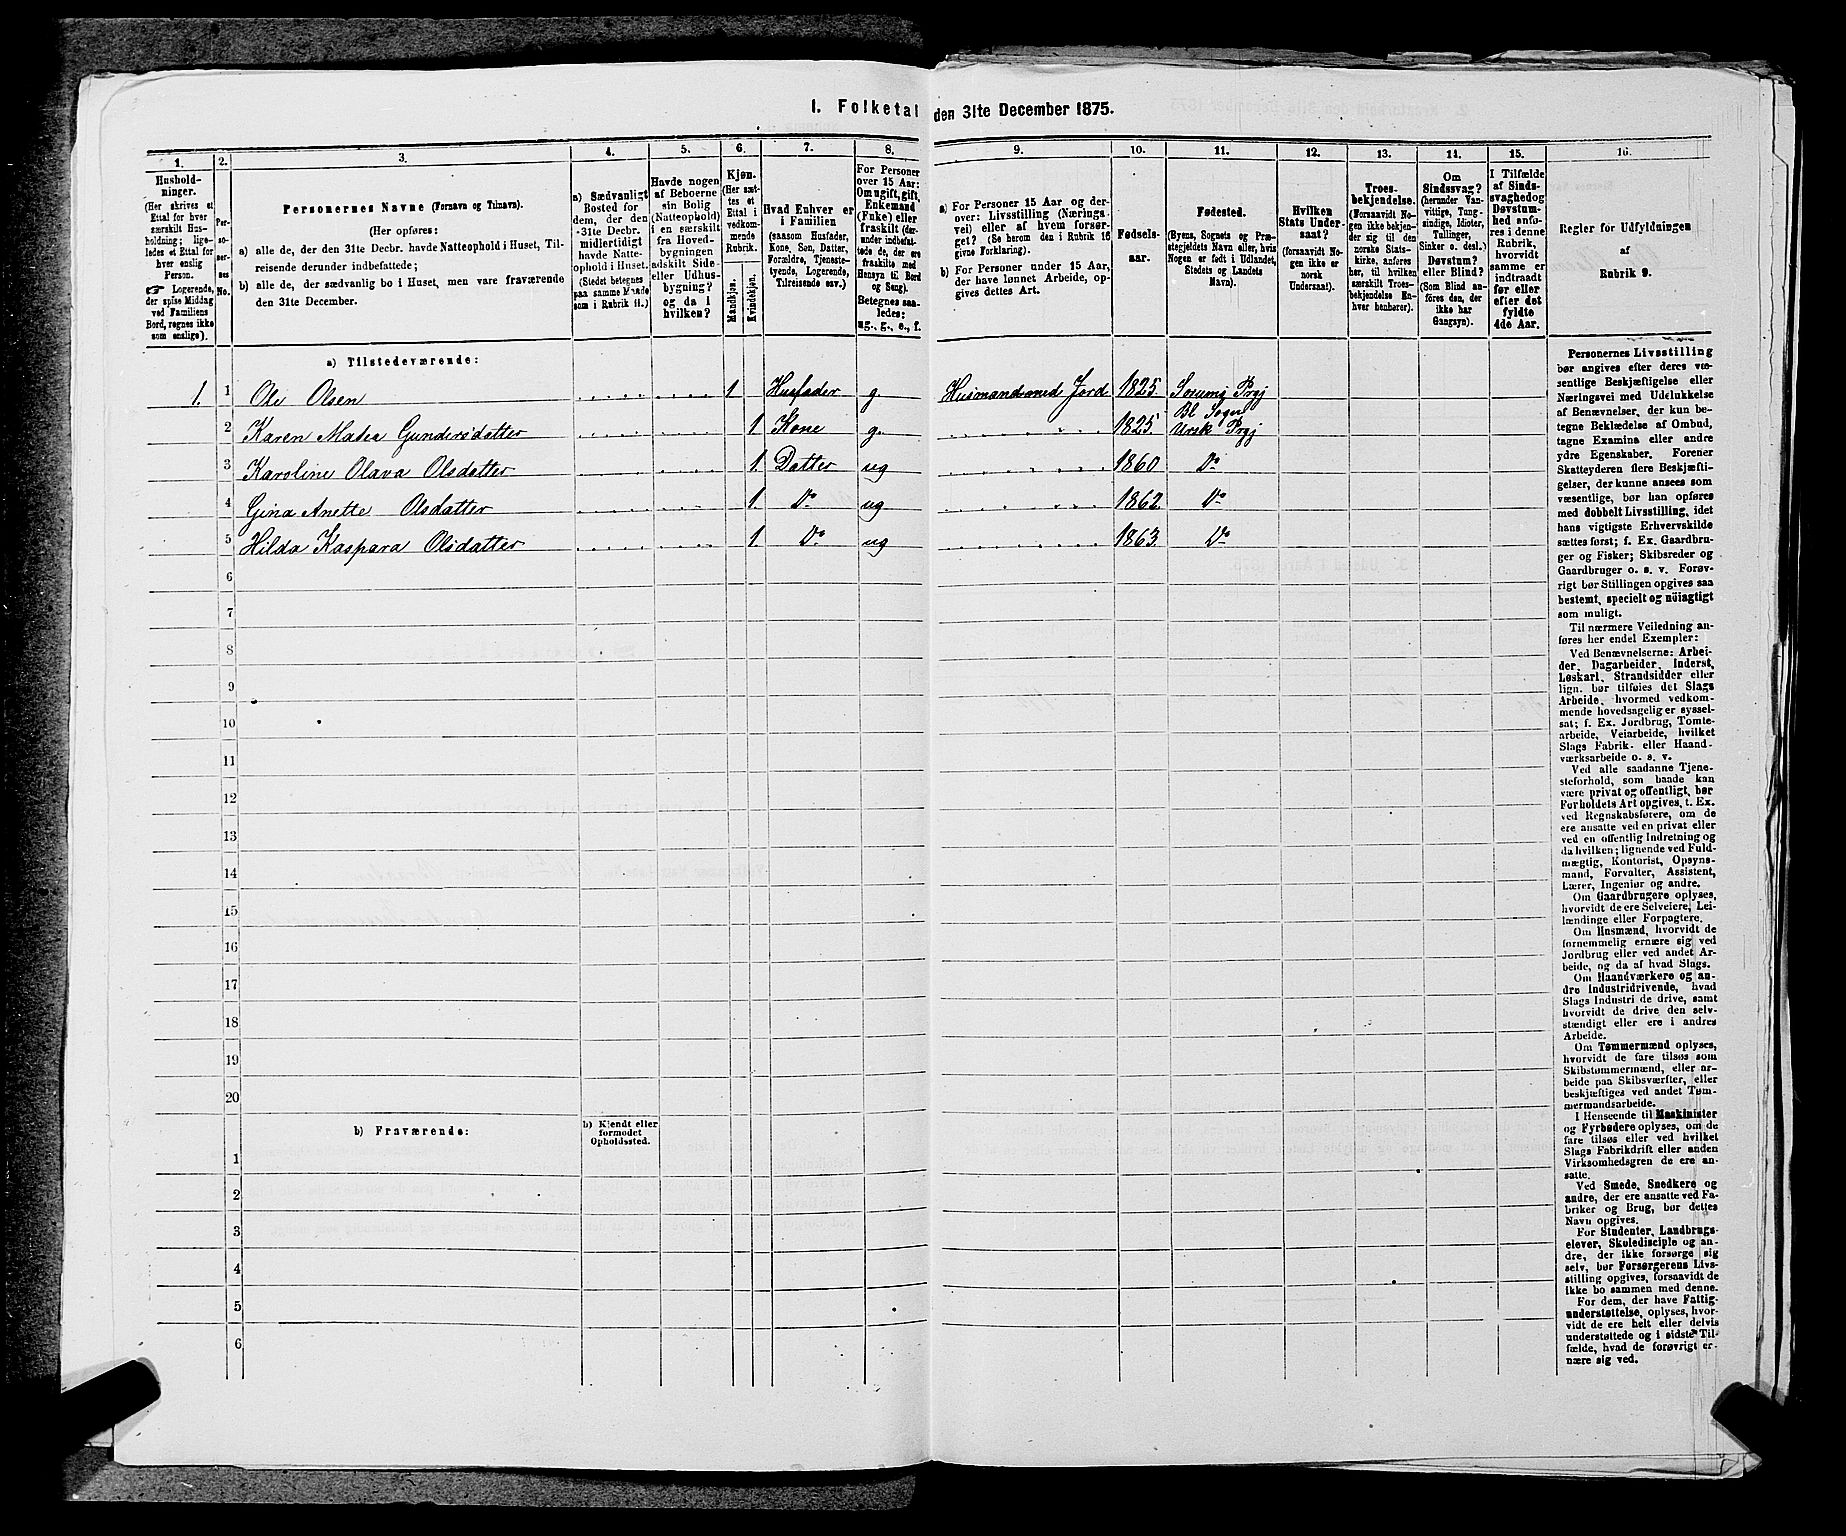 1. Folketal den 31te December 1875.
1. 2. 3. 4. 5. 6. 7. 8. 9. 10. 11. 12. 13. 14. 15. 16.
Hushold-
ninger.
(Her skrives et
Ettal for hver
særskilt Hus-
holdning; lige-
ledes et Ettal for
hver enslig
Person.
☞ Logerende,
der spise Middag
ved Familiens
Bord, regnes ikke
som enslige).
Per-
so-
ner-
nes
No.
Personernes Navne (Fornavn og Tilnavn).
(Her opføres:
a) alle de, der den 31te Decbr. havde Natteophold i Huset, Til-
reisende derunder indbefattede;
b) alle de, der sædvanlig bo i Huset, men vare fraværende
den 31te December.
a) Sædvanligt
Bosted for
dem, der den
31te Decbr.
midlertidigt
havde Natte-
ophold i Huset.
(Stedet betegnes
paa samme Maade
som i Rubrik 11.)
Havde nogen
af Beboerne
sin Bolig
(Natteophold)
i en særskilt
fra Hoved-
bygningen
adskilt Side-
eller Udhus-
bygning?
og da i
hvilken?
Kjøn.
(Her sæt-
tes et
Ettal i
vedkom-
mende
Rubrik.
Mandkjøn.
Kvindekjøn.
Hvad Enhver er
i Familien
(saasom Husfader,
Kone, Søn, Datter,
Forældre, Tjeneste-
tyende, Logerende,
Tilreisende osv.)
For Personer
over 15 Aar:
Om ugift, gift,
Enkemand
(Enke) eller
fraskilt (der-
under indbefat-
tede de, der ere
fraskilte med
Hensyn til Bord
og Seng).
Betegnes saa-
ledes:
ug., g., e., f.
a) For Personer 15 Aar og der-
over: Livsstilling (Nærings-
vei) eller af hvem forsør-
get? (Se herom den i Rubrik 16
givne Forklaring).
b) For Personer under 15 Aar,
der have lønnet Arbeide, op-
gives dettes Art.
Fødsels-
aar.
Fødested.
(Byens, Sognets og Præ-
stegjeldets Navn eller, hvis
Nogen er født i Udlandet,
Stedets og Landets
Navn).
Hvilken
Stats Under-
saat?
(forsaavidt No-
gen ikke er
norsk
Undersaat).
Troes-
bekjendelse.
(Forsaavidt No-
gen ikke bekjen-
der sig til den
norske Stats-
kirke, anføres
her, til hvilken
særskilt Troes-
bekjendelse En-
hver henhører).
Om
Sindssvag?
(herunder Van-
vittige, Tung-
sindige, Idioter,
Tullinger,
Sinker o. desl.)
Døvstum?
eller Blind?
(Som Blind an-
føres den, der
ikke har
Gangsyn).
I Tilfælde
af Sinds-
svaghed og
Døvstum-
hed anfø-
res i denne
Rubrik,
hvorvidt
samme er
indtraadt
før eller
efter det
fyldte
4de Aar.
Regler for Udfyldningen
af
Rubrik 9.
a) Tilstedeværende:
1. 1 Ole Olsen 1 Husfader g. Husmand med Jord 1825. Sørums Prgj
Bl Sogn
2 Karen Matea Gundersdatter 1. Kone g. 1825. Ursk Prgj
3 Karoline Olava Olsdatter 1. Datter ug 1860 Do
4 Gina Anette Olsdatter 1. Do ug 1862. Do
5 Hilda Kaspara Olsdatter 1. Do ug 1863. Do
6
7
8
9
10
11
12
13
14
15
16
17
18
19
20
b) Fraværende:
b) Kjendt eller
formodet
Opholdssted.
1
2
3
4
5
6
Personernes Livsstilling
bør angives efter deres væ-
sentlige Beskjæftigelse eller
Næringsvei med Udelukkelse
af Benævnelser, der kun be-
tegne Beklædelse af Ombud,
tagne Examina eller andre
ydre Egenskaber. Forener
Skatteyderen flere Beskjæfti-
gelser, der kunne ansees som
væsentlige, bør han opføres
med dobbelt Livsstilling, idet
hans vigtigste Erhvervskilde
sættes først; f. Ex. Gaardbru-
ger og Fisker; Skibsreder og
Gaardbruger o. s. v. Forøv-
rigt bør Stillingen opgives saa
bestemt, specielt og nøiagtigt
som muligt.
Til nærmere Veiledning an-
føres her endel Exempler:
Ved Benævnelserne: Arbei-
der, Dagarbeider, Inderst,
Løskarl, Strandsidder eller
lign. bør tilføies det Slags
Arbeide, hvormed vedkom-
mende hovedsagelig er syssel-
sat; f. Ex. Jordbrug, Tomte-
arbeide, Veiarbeide, hvilket
Slags Fabrik- eller Haand-
værksarbeide o. s. v.
Ved alle saadanne Tjene-
steforhold, som baade kan
være privat og offentligt, bør
Forholdets Art opgives, t. Ex.
ved Regnskabsførere, om de
ere ansatte ved en privat eller
ved en offentlig Indretning og
da hvilken; lignende ved Fuld-
mægtig, Kontorist, Opsyns-
mand, Forvalter, Assistent,
Lærer, Ingeniør og andre.
Om Gaardbrugere oplyses,
hvorvidt de ere Selveiere, Lei-
lændinge eller Forpagtere.
Om Husmænd, hvorvidt de
fornemmelig ernære sig ved
Jordbrug eller ved andet Ar-
beide, og da af hvad Slags.
Om Haandværkere og an-
dre Industridrivende, hvad
Slags Industri de drive, samt
hvorvidt de drive den selv-
stændigt eller ere i andres
Arbeide.
Om Tømmermænd oplyses,
hvorvidt de fare tilsøs som
Skibstømmermænd, eller ar-
beide paa Skibsværfter, eller
beskjæftiges ved andet Tøm-
mermandsarbeide.
I Henseende til Maskinister
og Fyrbødere oplyses, om de
fare tilsøs eller ved hvilket
Slags Fabrikdrift eller anden
Virksomhedsgren de ere an-
satte.
Ved Smede, Snedkere og
andre, der ere ansatte ved Fa-
briker og Brug, bør dettes
Navn opgives.
For Studenter, Landbrugs-
elever, Skoledisciple og an-
dre, der ikke forsørge sig
selv, bør Forsørgerens Livs-
stilling opgives, forsaavidt de
ikke bo sammen med denne.
For dem, der have Fattig-
understøttelse, oplyses, hvor-
vidt de ere helt eller delvis
understøttede og i sidste Til-
fælde, hvad de forøvrigt er-
nære sig ved.